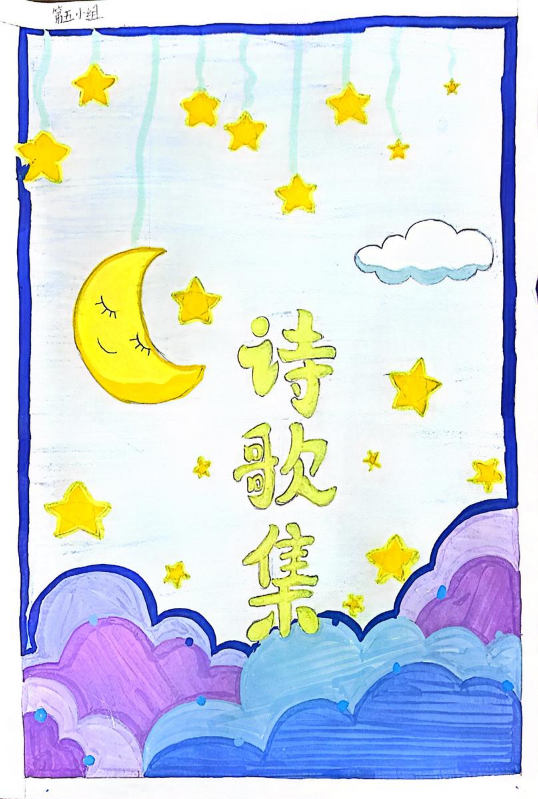 第五小组
诗
歌
集